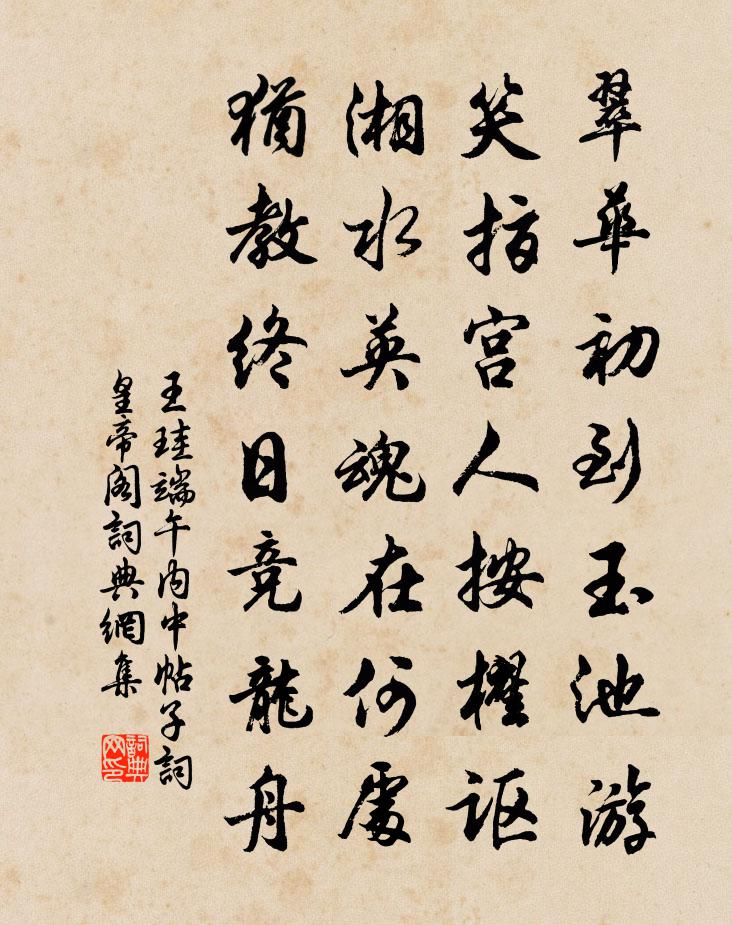 翠華初到玉池游
笑指宫人按櫂讴
湘水英魂在何處
猶教终日竞龍舟
王珪端午内中帖子詞
皇帝阁詞典網集
詞典网印